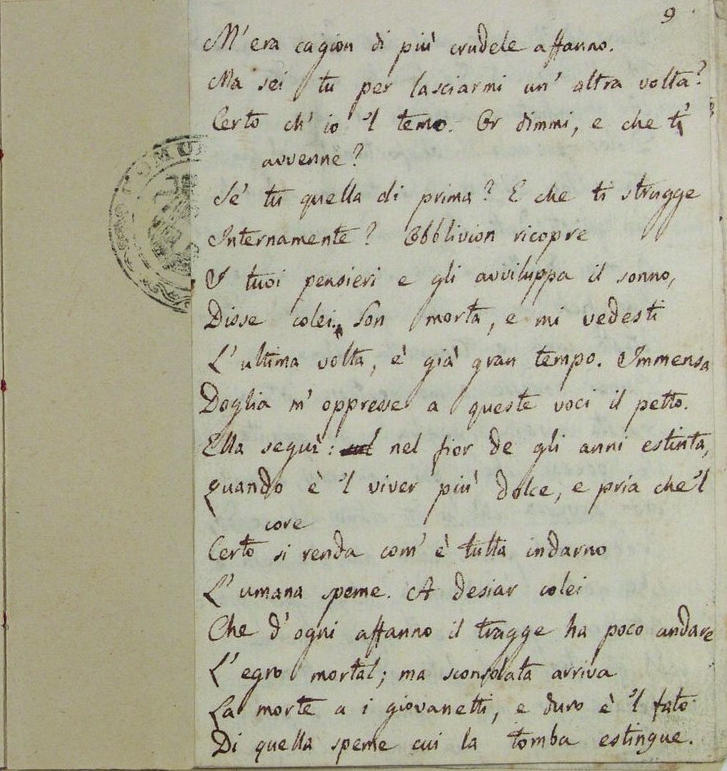 9
M'era cagion di più crudele affanno.
Ma sei tu per lasciarmi un' altra volta?
Certo ch' io 'l temo. Or dimmi, e che ti
avvenne?
Se' tu quella di prima? E che ti strugge
Internamente? Obblivion ricopre
I tuoi pensieri e gli avviluppa il sonno,
Disse colei. Son morta, e mi vedesti
L'ultima volta, è già gran tempo. Immensa
Doglia m' oppresse a queste voci il petto.
Ella seguì: nel fior de gli anni estinta,
Quando è 'l viver più dolce, e pria che 'l
core
Certo si renda com' è tutta indarno
L'umana speme. A desiar colei
Che d'ogni affanno il tragge ha poco andare
L'egro mortal; ma sconsolata arriva
La morte a i giovanetti, e duro è 'l fato
Di quella speme cui la tomba estingue.
COMU